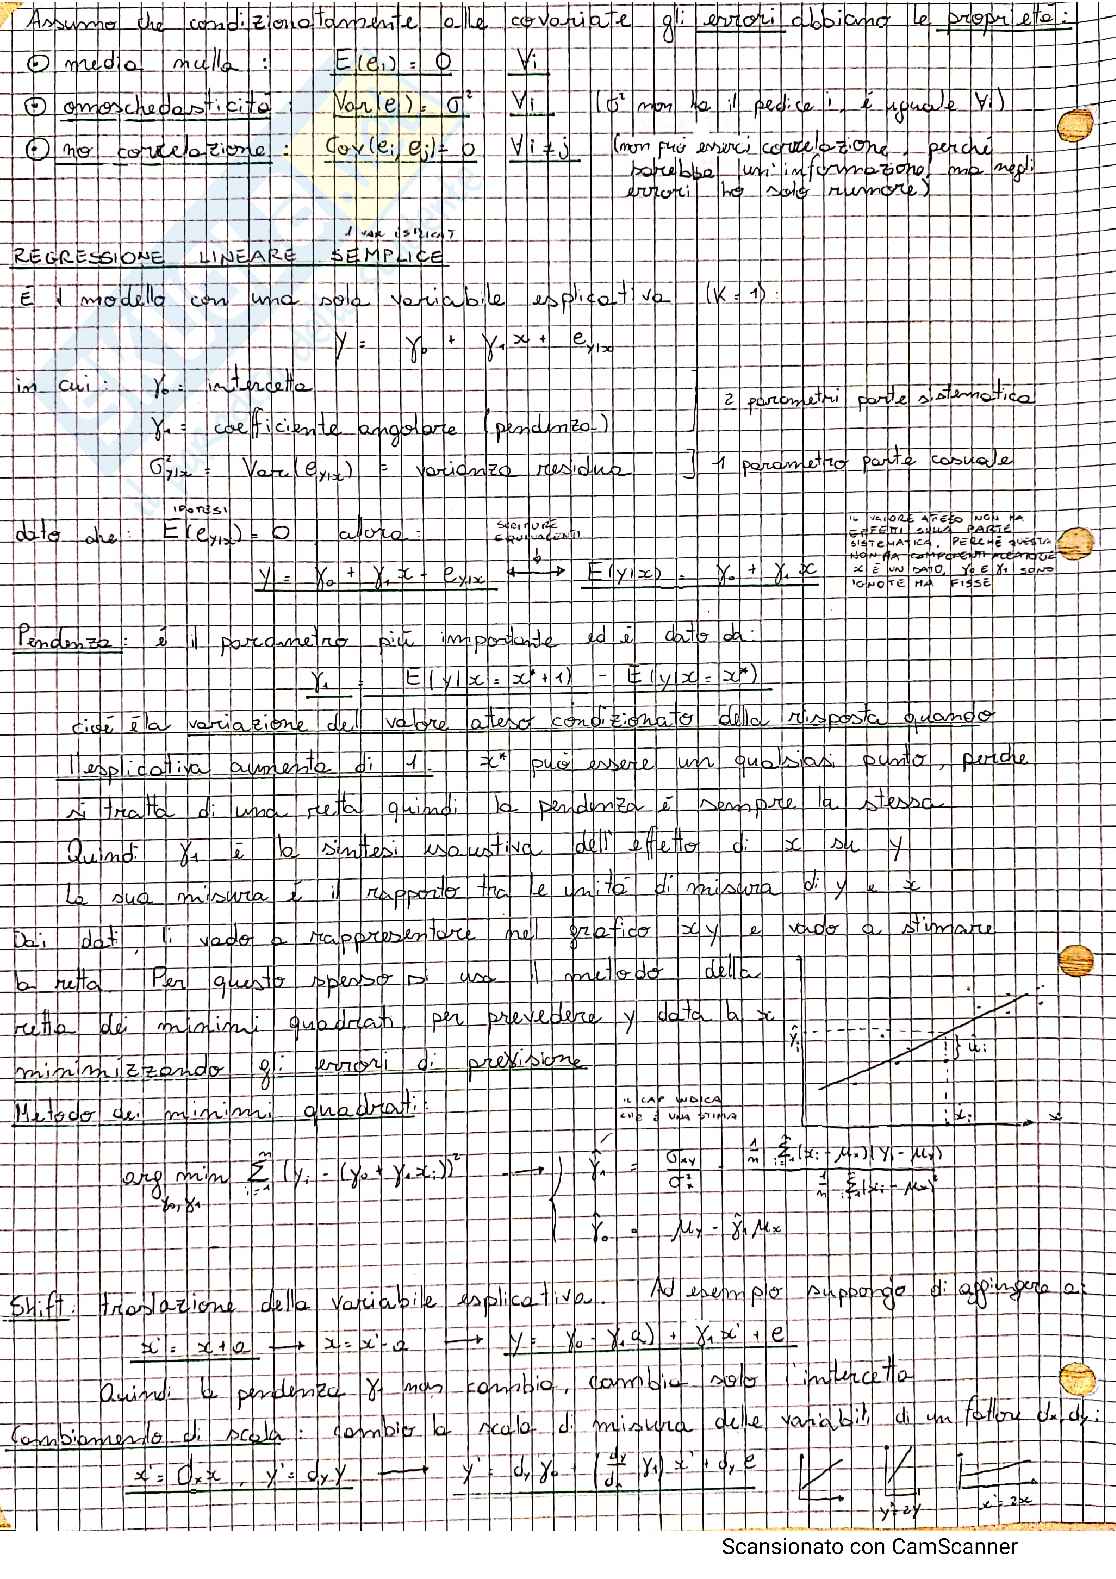 Assumo che condizionatamente alle covariate gli errori abbiano le proprietà:
⊙ media nulla : E(ei) = 0 ∀i
⊙ omoschedasticità : Var(ei) = σ² ∀i (σ² non ha il pedice i, è uguale ∀i)
⊙ no correlazione : Cov(ei, ej) = 0 ∀i≠j (non può esserci correlazione, perché
sarebbe un'informazione, ma negli
errori ho solo rumore)
1 VAR ESPLICAT
REGRESSIONE LINEARE SEMPLICE
È il modello con una sola variabile esplicativa (K = 1):
y = γ0 + γ1 x + ey|x
in cui: γ0 = intercetta
γ1 = coefficiente angolare (pendenza)
2 parametri parte sistematica
σ²y|x = Var(ey|x) = varianza residua ] 1 parametro parte casuale
IPOTESI
dato che: E(ey|x) = 0 allora:
SCRITTURE
EQUIVALENTI
y = γ0 + γ1 x + ey|x ⟷ E(y|x) = γ0 + γ1 x
IL VALORE ATTESO NON HA
EFFETTI SULLA PARTE
SISTEMATICA, PERCHÉ QUESTA
NON HA COMPONENTI ALEATORIE
X È UN DATO, γ0 E γ1 SONO
IGNOTE MA FISSE
Pendenza: è il parametro più importante ed è dato da:
γ1 = E(y|x = x*+1) - E(y|x = x*)
cioè è la variazione del valore atteso condizionato della risposta quando
l'esplicativa aumenta di 1. x* può essere un qualsiasi punto, perché
si tratta di una retta quindi la pendenza è sempre la stessa
Quindi γ1 è la sintesi esaustiva dell'effetto di x su y
La sua misura è il rapporto tra le unità di misura di y e x
Dai dati, li vado a rappresentare nel grafico xy e vado a stimare
la retta. Per questo spesso si usa il metodo della
retta dei minimi quadrati, per prevedere y data la x
minimizzando gli errori di previsione
ŷi
ûi
xi
x
Metodo dei minimi quadrati:
IL CAP INDICA
CHE È UNA STIMA
arg min γ0,γ1 Σ i=1 n (yi - (γ0 + γ1 xi))² → { γ̂1 = σxy / σ²x = 1/n Σ i=1 n (xi - μx)(yi - μy) / 1/n Σ i=1 n (xi - μx)²
γ̂0 = μy - γ̂1 μx
Shift: traslazione della variabile esplicativa. Ad esempio suppongo di aggiungere a:
x' = x + a → x = x' - a → y = γ0 - γ1 a) + γ1 x' + e
Quindi la pendenza γ1 non cambia, cambia solo l'intercetta
Cambiamento di scala: cambio la scala di misura delle variabili di un fattore dx, dy:
x' = dx x , y' = dy y → y' = dy γ0 + (dy/dx γ1) x' + dy e
y'=2y
x'=2x
Scansionato con CamScanner